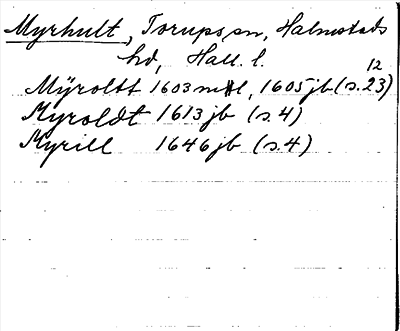 Myrhult, Torups sn, Halmstads
hd, Hall. l.
12
Mÿroltt 1603 mtl, 1605 jb (s.23)
Myroldt 1613 jb (s.4)
Myrill 1646 jb (s.4)